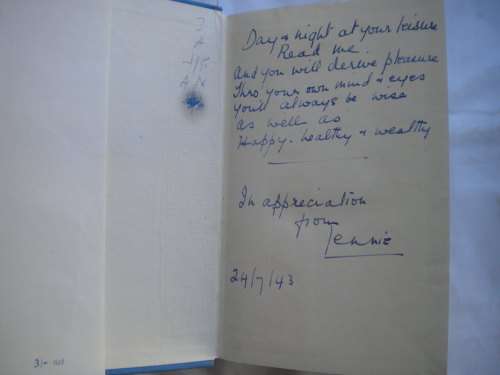 Day & night at your leisure
Read me.
And you will derive pleasure
Thro' your own mind & eyes
You'll always be wise
as well as
Happy - healthy & wealthy
In appreciation
from
Jennie
24/7/43